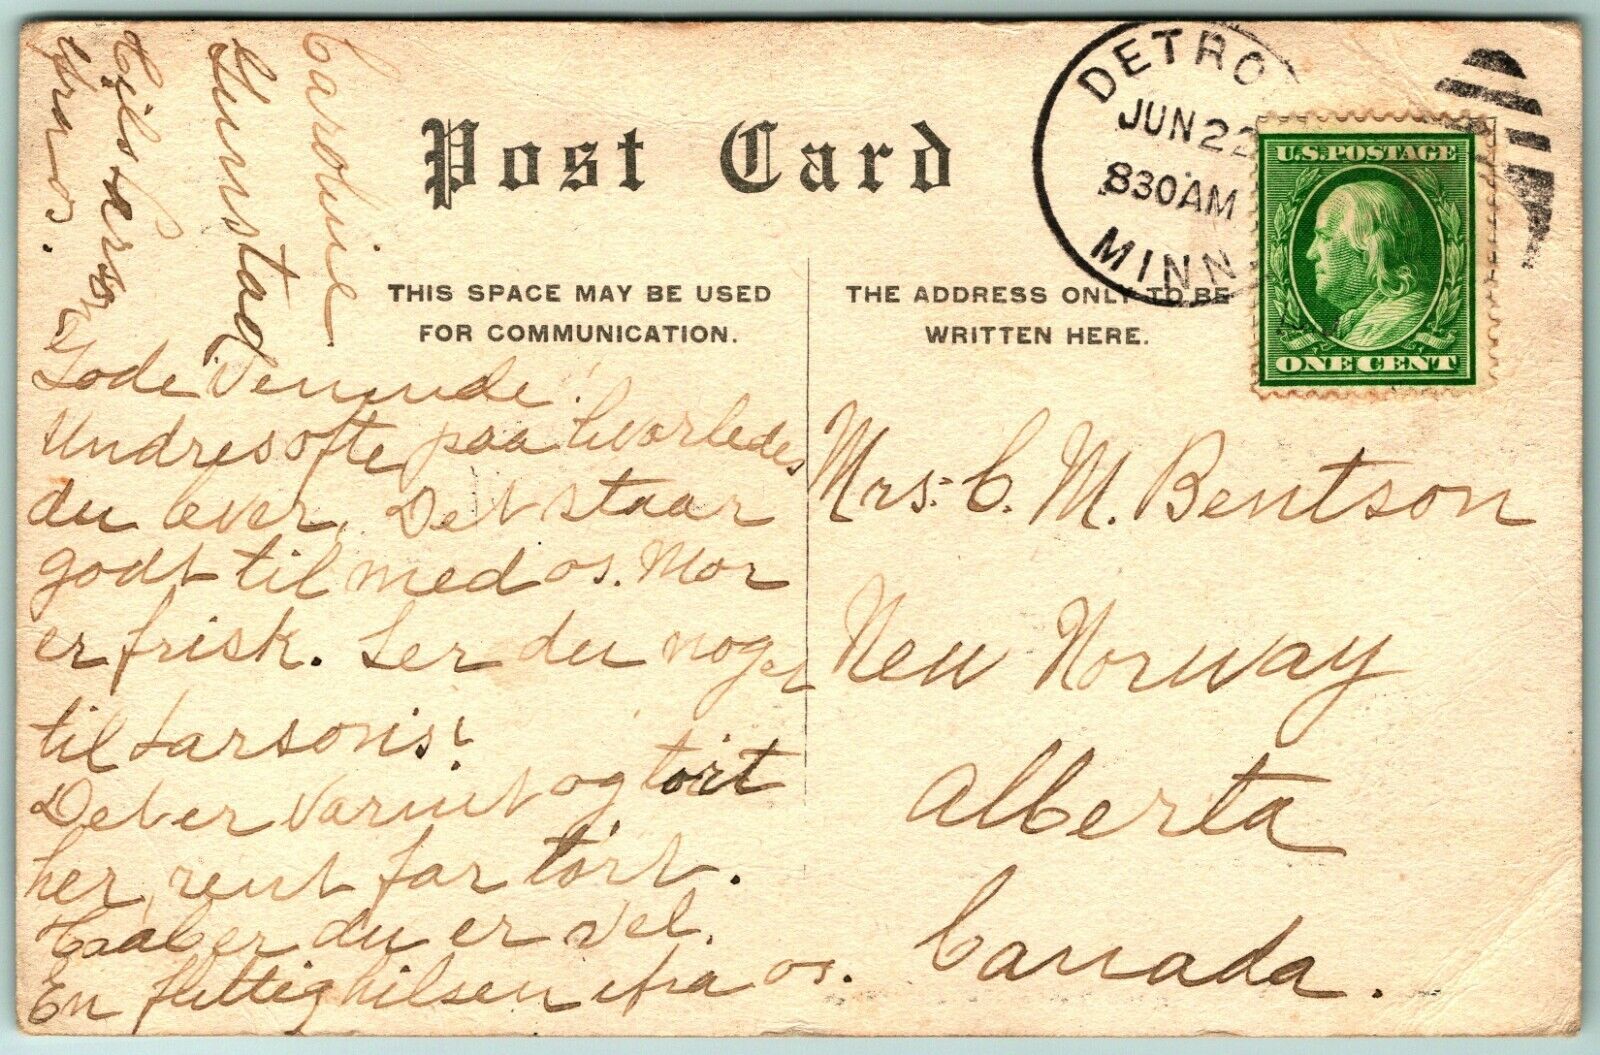 Post Card
THIS SPACE MAY BE USED
FOR COMMUNICATION.
THE ADDRESS ONLY TO BE
WRITTEN HERE.
DETRO
JUN 22
830AM
MINN
U.S. POSTAGE
ONE CENT
Gode Veninde!
Undres ofte paa hvorledes
du lever. Det staar
godt til med os. Mor
er frisk. Ser du noget
til Larsons?
Det er varmt og tört
her, rent for tört.
Haaber du er vel.
En flittig hilsen ifra os.
Caroline
Gunstad
Hils
Mrs. C. M. Bentson
New Norway
Alberta
Canada.